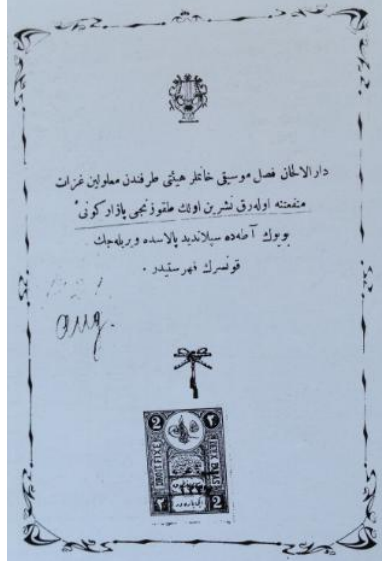 دار الالحان فصل موسيقى خانملر هيئتى طرفندن معلولين غزات
منفعتنه اوله‌رق تشرين اولك طقوزنجى پازار كونى
بويوك آطه‌ده سپلانديد پالاسده ويريله‌جك
قونسرك فهرستيدر .
aug.
2 ٢
٢ 2